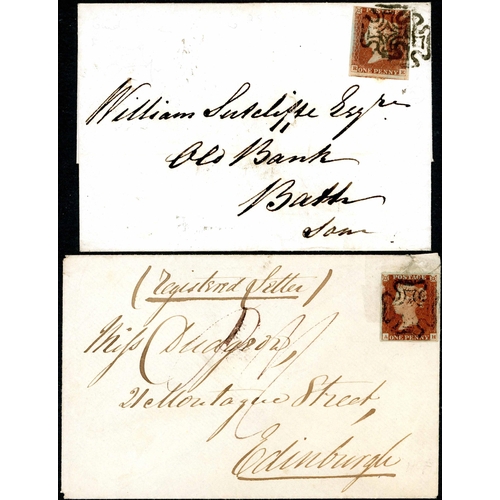 William Sutcliffe Esqre
Old Bank
Bath
Som
ONE PENNY
(Registered Letter)
Miss Dudgeon,
21 Montague Street,
Edinburgh
POSTAGE
ONE PENNY